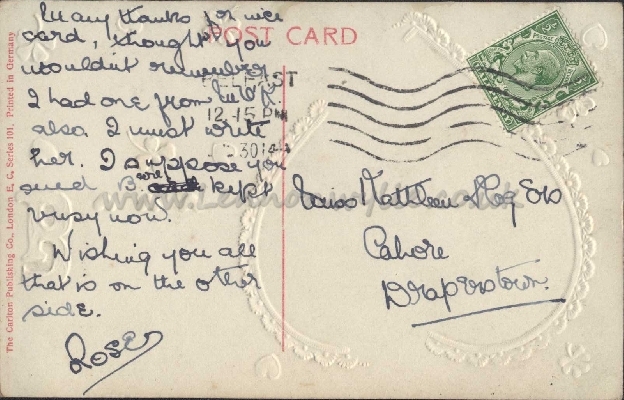 Many thanks for nice
card, thought you
wouldn't remember
I had one from
also I must write
her. I suppose you
and B. were kept
busy now.
Wishing you all
that is on the other
side.
Rose
POST CARD
BELFAST
12-15 PM
30 14
Miss
Cahore
Draperstown.
The Carlton Publishing Co., London E, C, Series 101. Printed in Germany